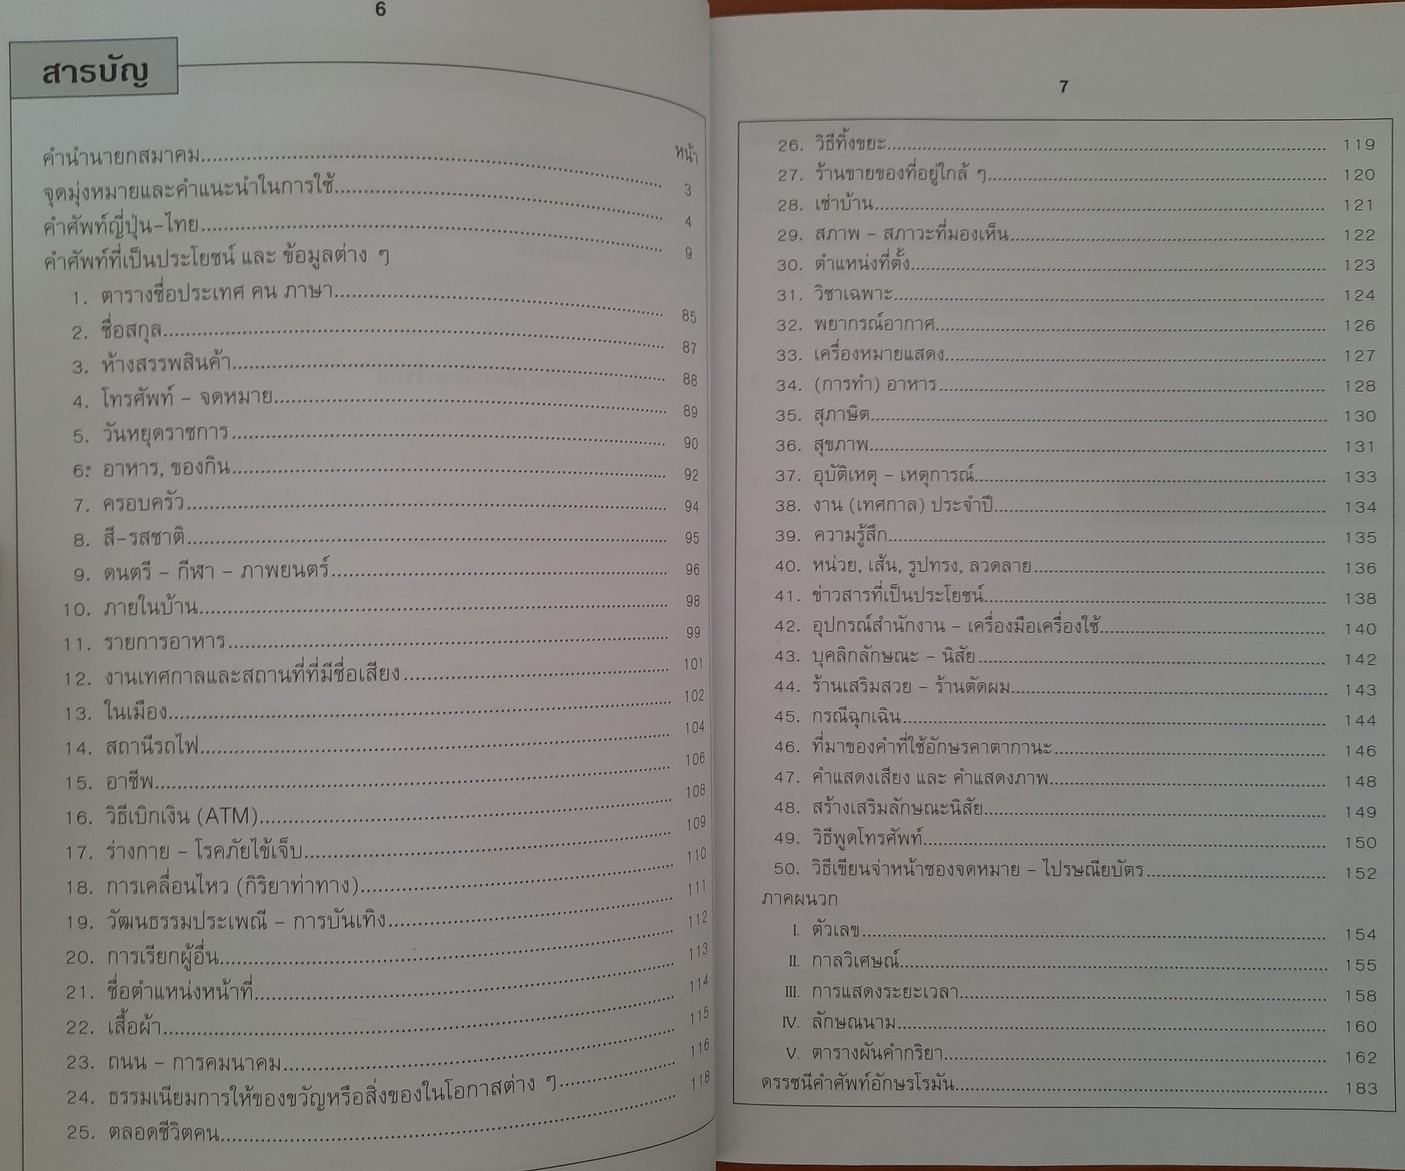 6
สารบัญ
หน้า
คำนำนายกสมาคม 3
จุดมุ่งหมายและคำแนะนำในการใช้ 4
คำศัพท์ญี่ปุ่น-ไทย 9
คำศัพท์ที่เป็นประโยชน์ และ ข้อมูลต่าง ๆ
1. ตารางชื่อประเทศ คน ภาษา 85
2. ชื่อสกุล 87
3. ห้างสรรพสินค้า 88
4. โทรศัพท์ - จดหมาย 89
5. วันหยุดราชการ 90
6. อาหาร, ของกิน 92
7. ครอบครัว 94
8. สี-รสชาติ 95
9. ดนตรี - กีฬา - ภาพยนตร์ 96
10. ภายในบ้าน 98
11. รายการอาหาร 99
12. งานเทศกาลและสถานที่ที่มีชื่อเสียง 101
13. ในเมือง 102
14. สถานีรถไฟ 104
15. อาชีพ 106
16. วิธีเบิกเงิน (ATM) 108
17. ร่างกาย - โรคภัยไข้เจ็บ 109
18. การเคลื่อนไหว (กิริยาท่าทาง) 110
19. วัฒนธรรมประเพณี - การบันเทิง 111
20. การเรียกผู้อื่น 112
21. ชื่อตำแหน่งหน้าที่ 113
22. เสื้อผ้า 114
23. ถนน - การคมนาคม 115
24. ธรรมเนียมการให้ของขวัญหรือสิ่งของในโอกาสต่าง ๆ 116
25. ตลอดชีวิตคน 118
7
26. วิธีทิ้งขยะ 119
27. ร้านขายของที่อยู่ใกล้ ๆ 120
28. เช่าบ้าน 121
29. สภาพ - สภาวะที่มองเห็น 122
30. ตำแหน่งที่ตั้ง 123
31. วิชาเฉพาะ 124
32. พยากรณ์อากาศ 126
33. เครื่องหมายแสดง 127
34. (การทำ) อาหาร 128
35. สุภาษิต 130
36. สุขภาพ 131
37. อุบัติเหตุ - เหตุการณ์ 133
38. งาน (เทศกาล) ประจำปี 134
39. ความรู้สึก 135
40. หน่วย, เส้น, รูปทรง, ลวดลาย 136
41. ข่าวสารที่เป็นประโยชน์ 138
42. อุปกรณ์สำนักงาน - เครื่องมือเครื่องใช้ 140
43. บุคลิกลักษณะ - นิสัย 142
44. ร้านเสริมสวย - ร้านตัดผม 143
45. กรณีฉุกเฉิน 144
46. ที่มาของคำที่ใช้อักษรคาตากานะ 146
47. คำแสดงเสียง และ คำแสดงภาพ 148
48. สร้างเสริมลักษณะนิสัย 149
49. วิธีพูดโทรศัพท์ 150
50. วิธีเขียนจ่าหน้าซองจดหมาย - ไปรษณียบัตร 152
ภาคผนวก
I. ตัวเลข 154
II. กาลวิเศษณ์ 155
III. การแสดงระยะเวลา 158
IV. ลักษณนาม 160
V. ตารางผันคำกริยา 162
ดรรชนีคำศัพท์อักษรโรมัน 183